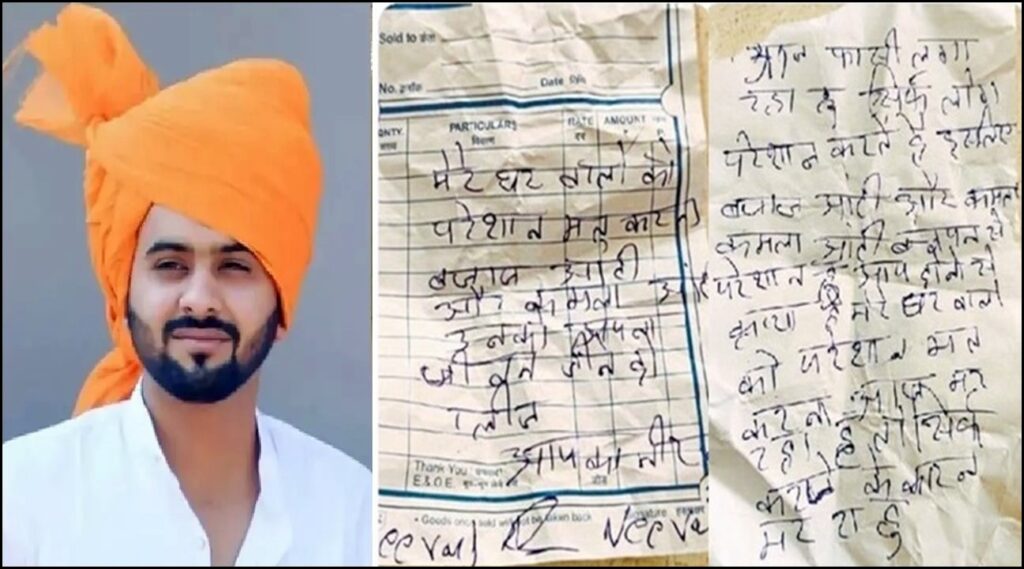 Sold to क्रेता
No. क्रमांक
Date दिनांक
QNTY.
PARTICULARS
RATE
AMOUNT
विवरण
मेरे घर वालो को
परेशान मत करना
बजाज आंटी
और कमला आंटी
इनको अपना
जीवन जीने दो
प्लीज
आपका नीर
Thank You
E.& O.E.
जोड़
• Goods once sold will not be taken back
Signature
Neeraj
Neera
फासी लगा
रहा हु सिर्फ लोग
परेशान करते है इसलिए
बजाज आंटी और कमला
कमला आंटी बचपन से
परेशान हु आप दोनो से
मेरे घर वालो
को परेशान मत
करना आज मर
रहा हु तो सिर्फ
के कारन
मर रा हु